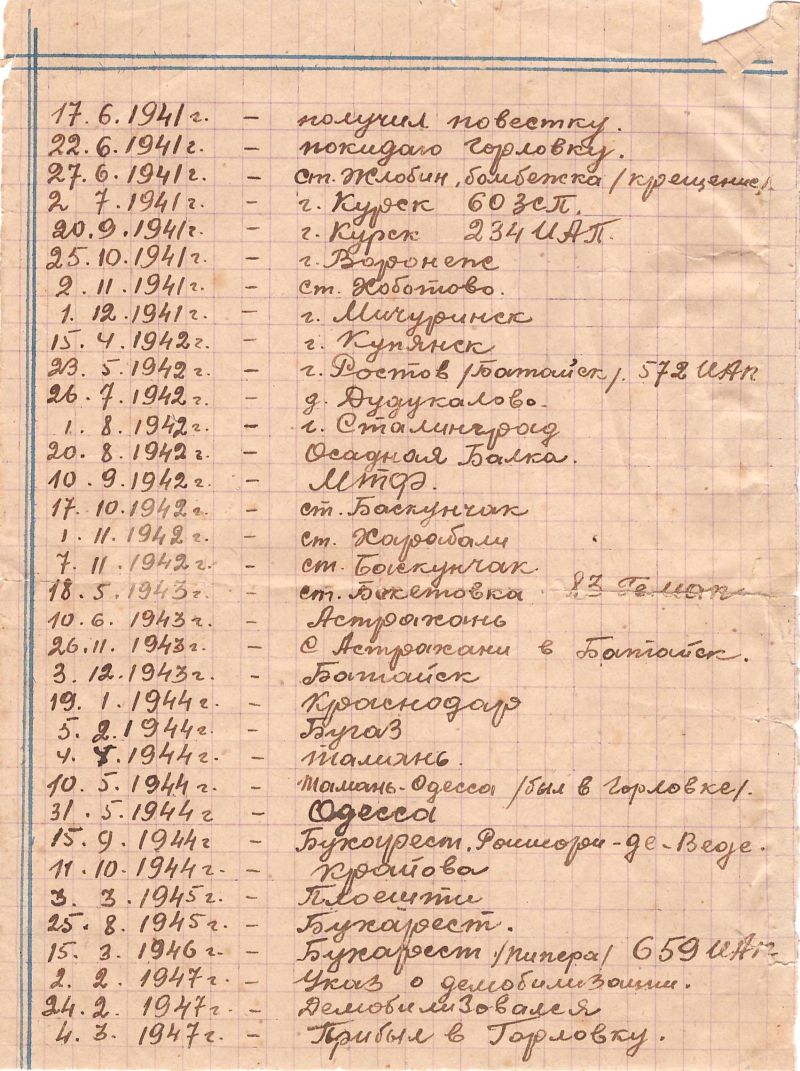 17.6.1941г. - получил повестку.
22.6.1941г. - покидаю Горловку.
27.6.1941г. - ст. Жлобин, бомбежка /крещение/
2 7.1941г. - г. Курск 60 ЗСП.
20.9.1941г. - г. Курск 234 ИАП.
25.10.1941г. - г. Воронеж
2.11.1941г. - ст. Хоботово.
1.12.1941г. - г. Мичуринск
15.4.1942г. - г. Купянск
23.5.1942г. - г. Ростов /Батайск/. 572 ИАП
26.7.1942г. - д. Дудукалово.
1.8.1942г. - г. Сталинград
20.8.1942г. - Осадная Балка.
10.9.1942г. - МТФ.
17.10.1942г. - ст. Баскунчак
1.11.1942г. - ст. Харабали
7.11.1942г. - ст. Баскунчак
18.5.1943г. - ст. Бекетовка 83
10.6.1943г. - Астрахань
26.11.1943г. - С Астрахани в Батайск.
3.12.1943г. - Батайск
19.1.1944г. - Краснодар
5.2.1944г. - Бугаз
4.4.1944г. - Тамань.
10.5.1944г. - Тамань-Одесса /был в Горловке/.
31.5.1944г - Одесса
15.9.1944г. - Бухарест, Рошиори-де-Веде.
11.10.1944г. - Крайова
3.3.1945г. - Плоешти
25.8.1945г. - Бухарест.
15.3.1946г. - Бухарест /Пипера/ 659 ИАП
2.2.1947г. - Указ о демобилизации.
24.2.1947г. - Демобилизовался
4.3.1947г. - Прибыл в Горловку.